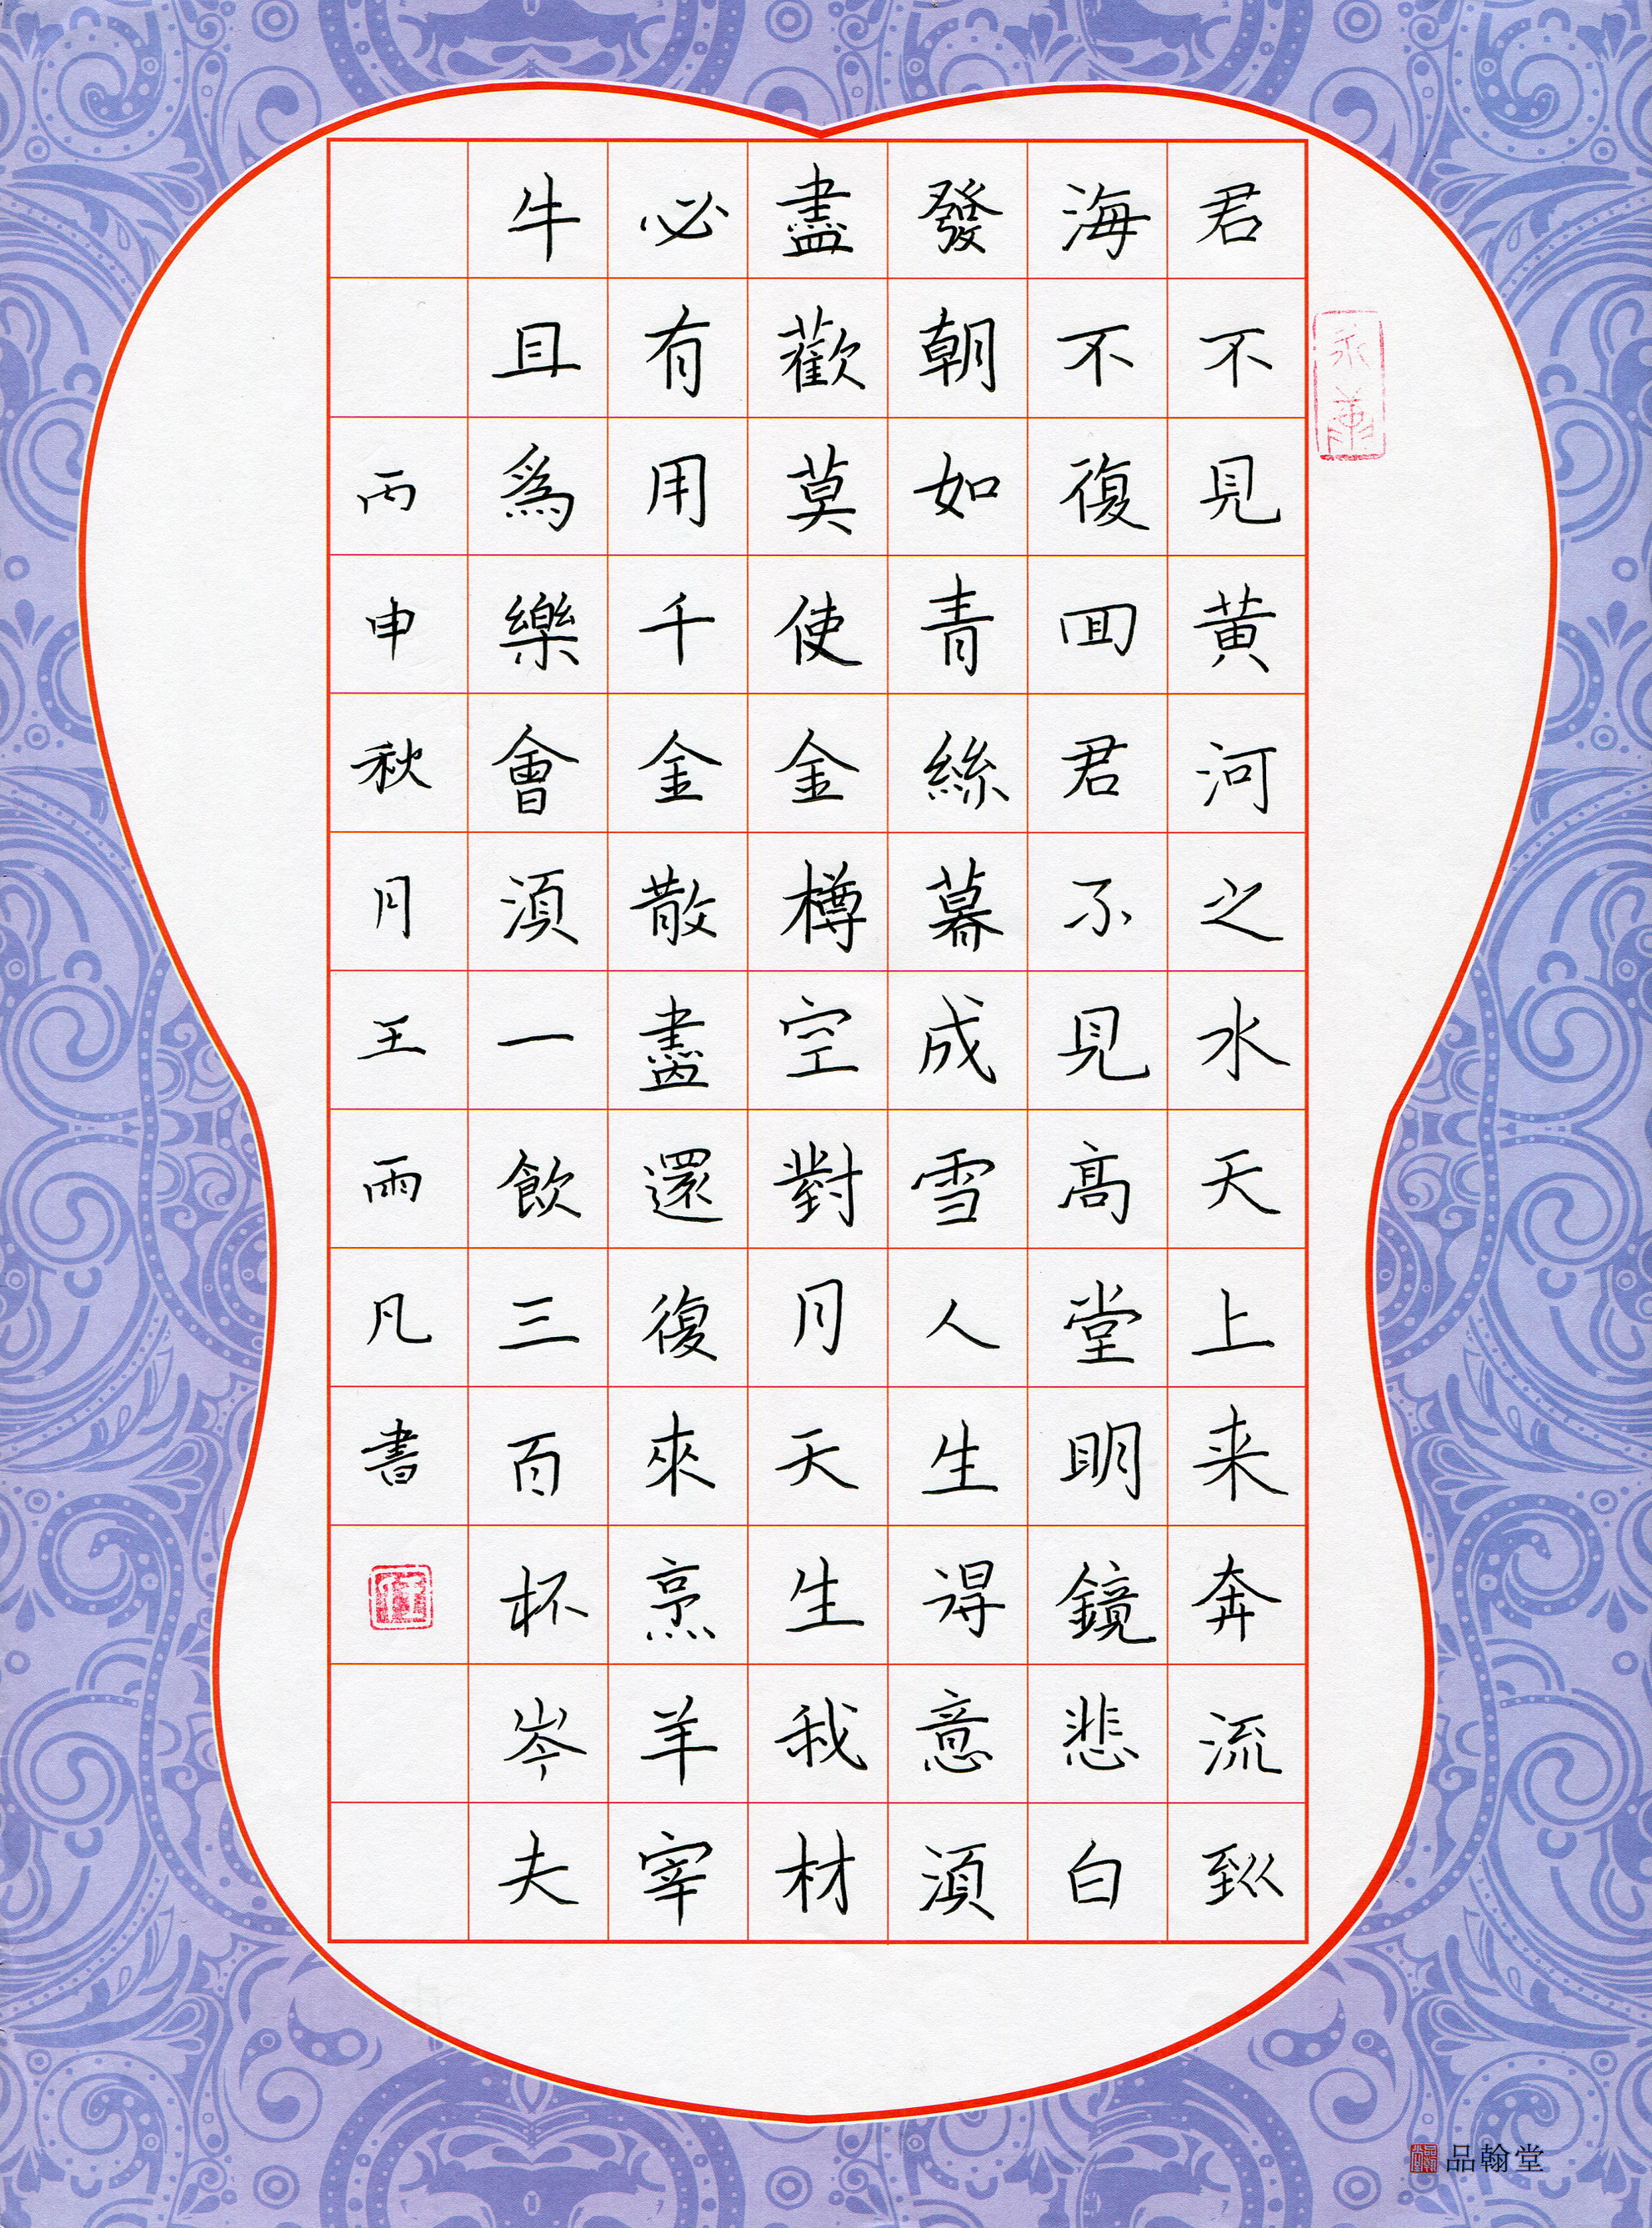 君不見黄河之水天上来奔流到
海不復囬君不見高堂明鏡悲白
發朝如青絲暮成雪人生得意須
盡歡莫使金樽空對月天生我材
必有用千金散盡還復來烹羊宰
牛且爲樂會須一飲三百杯岑夫
丙申秋月王雨凡書
品翰堂